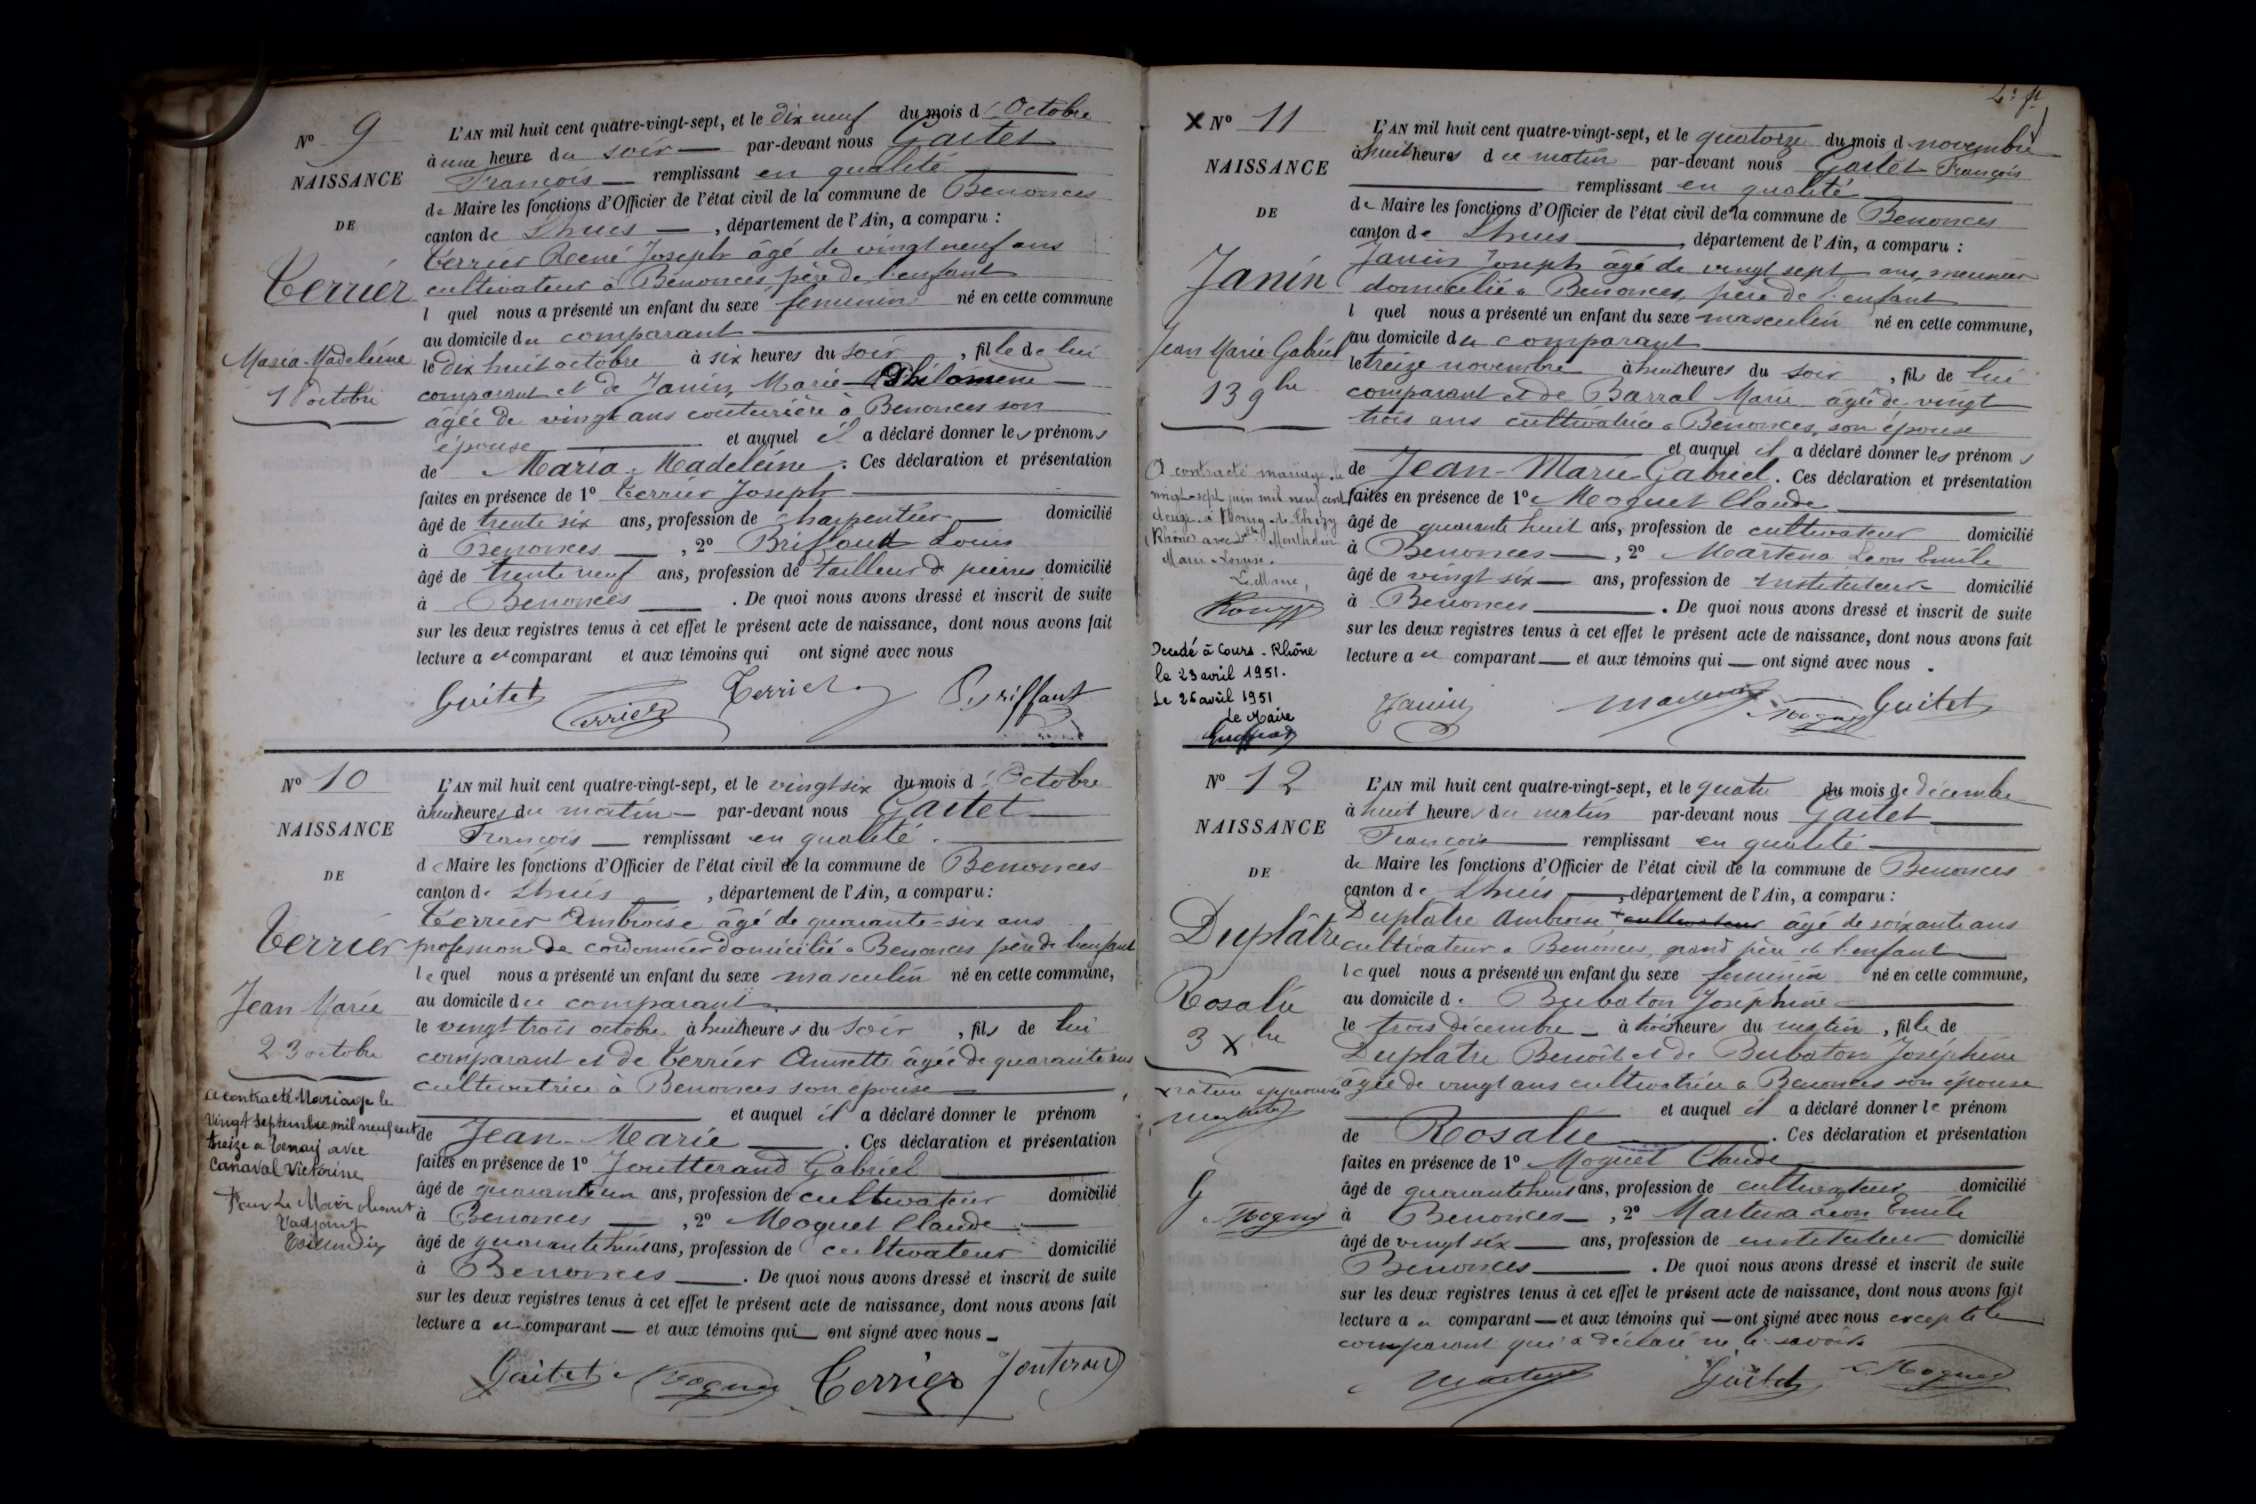 Nº 9
NAISSANCE
DE
Terrier
Maria-Madeleine
18 octobre
L'AN mil huit cent quatre-vingt-sept, et le dix neuf du mois d'Octobre
à une heure du soir par-devant nous Gaitet
François remplissant en qualité
de Maire les fonctions d'Officier de l'état civil de la commune de Benonces
canton de Lhuis, département de l'Ain, a comparu :
Terrier René Joseph âgé de vingt neuf ans
cultivateur à Benonces, père de l'enfant
l quel nous a présenté un enfant du sexe féminin né en cette commune
au domicile du comparant
le dix huit octobre à six heures du soir, fille de lui
comparant et de Janin, Marie Philomene
âgée de vingt ans couturière à Benonces son
épouse et auquel il a déclaré donner les prénoms
de Maria Madeleine. Ces déclaration et présentation
faites en présence de 1º Terrier Joseph
âgé de trente six ans, profession de charpentier domicilié
à Benonces, 2º Briffaut Louis
âgé de trente neuf ans, profession de tailleur de pierres domicilié
à Benonces. De quoi nous avons dressé et inscrit de suite
sur les deux registres tenus à cet effet le présent acte de naissance, dont nous avons fait
lecture au comparant et aux témoins qui ont signé avec nous
Gaitet Terrier Terrier Briffaut
Nº 10
NAISSANCE
DE
Terrier
Jean Marie
23 octobre
a contracté Mariage le
vingt Septembre mil neuf cent
treize à Tenay avec
Canaval Victorine
Pour Le Maire absent
l'adjoint
L'AN mil huit cent quatre-vingt-sept, et le vingt six du mois d'Octobre
à huit heures du matin par-devant nous Gaitet
François remplissant en qualité
de Maire les fonctions d'Officier de l'état civil de la commune de Benonces
canton de Lhuis, département de l'Ain, a comparu :
Terrier Ambroise âgé de quarante-six ans
profession de cordonnier domicilié à Benonces père de l'enfant
lequel nous a présenté un enfant du sexe masculin né en cette commune,
au domicile du comparant
le vingt trois octobre à huit heures du soir, fils de lui
comparant et de Terrier Annette âgée de quarante ans
cultivatrice à Benonces son épouse
et auquel il a déclaré donner le prénom
de Jean-Marie. Ces déclaration et présentation
faites en présence de 1º Joutterand Gabriel
âgé de quarante un ans, profession de cultivateur domicilié
à Benonces, 2º Moquet Claude
âgé de quarante huit ans, profession de cultivateur domicilié
à Benonces. De quoi nous avons dressé et inscrit de suite
sur les deux registres tenus à cet effet le présent acte de naissance, dont nous avons fait
lecture au comparant et aux témoins qui ont signé avec nous
Gaitet Moquet Terrier Jouterand
2e ft
X Nº 11
NAISSANCE
DE
Janin
Jean Marie Gabriel
13 9bre
A contracté mariage le
vingt-sept juin mil neuf cent
douze à Bourg-de-Thizy
(Rhône) avec Delle
Marie Louise.
Le Maire,
Décédé à Cours-Rhône
le 23 avril 1951.
Le 26 avril 1951
Le Maire
L'AN mil huit cent quatre-vingt-sept, et le quatorze du mois d novembre
à huit heures du matin par-devant nous Gaitet François
remplissant en qualité
de Maire les fonctions d'Officier de l'état civil de la commune de Benonces
canton de Lhuis, département de l'Ain, a comparu :
Janin Joseph âgé de vingt sept ans, meunier
domicilié à Benonces, père de l'enfant
l quel nous a présenté un enfant du sexe masculin né en cette commune,
au domicile du comparant
le treize novembre à huit heures du soir, fils de lui
comparant et de Barral Marie âgée de vingt
trois ans cultivatrice à Benonces, son épouse
et auquel il a déclaré donner les prénoms
de Jean-Marie Gabriel. Ces déclaration et présentation
faites en présence de 1º Moquet Claude
âgé de quarante huit ans, profession de cultivateur domicilié
à Benonces, 2º Martena Léon Emile
âgé de vingt six ans, profession de Instituteur domicilié
à Benonces. De quoi nous avons dressé et inscrit de suite
sur les deux registres tenus à cet effet le présent acte de naissance, dont nous avons fait
lecture au comparant et aux témoins qui ont signé avec nous.
Janin Martena Moquet Gaitet
Nº 12
NAISSANCE
DE
Duplâtre
Rosalie
3 Xbre
rature approuvée
Martena
G
Moquet
L'AN mil huit cent quatre-vingt-sept, et le quatre du mois de décembre
à huit heures du matin par-devant nous Gaitet
François remplissant en qualité
de Maire les fonctions d'Officier de l'état civil de la commune de Benonces
canton de Lhuis, département de l'Ain, a comparu :
Duplatre Ambroise, cultivateur âgé de soixante ans
cultivateur à Benonces, grand père de l'enfant
lequel nous a présenté un enfant du sexe feminin né en cette commune,
au domicile de Bubaton Joséphine
le trois décembre à trois heures du matin, fille de
Duplatre Benoît et de Bubaton Joséphine
âgée de vingt ans cultivatrice à Benonces son épouse
et auquel il a déclaré donner le prénom
de Rosalie. Ces déclaration et présentation
faites en présence de 1º Moquet Claude
âgé de quarante huit ans, profession de cultivateur domicilié
à Benonces, 2º Martena Léon Emile
âgé de vingt six ans, profession de instituteur domicilié
Benonces. De quoi nous avons dressé et inscrit de suite
sur les deux registres tenus à cet effet le présent acte de naissance, dont nous avons fait
lecture au comparant et aux témoins qui ont signé avec nous excepté le
comparant qui a déclaré ne le savoir
Martena Gaitet Moquet